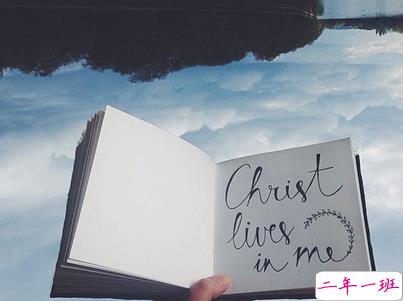 Christ
lives
in me
二年一班